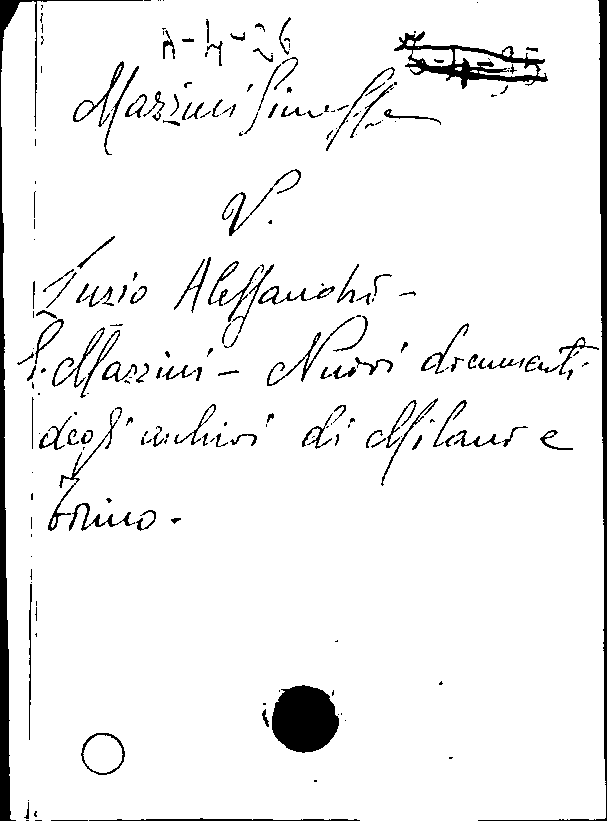 A-4-26
Mazzini Giuseppe
V.
Luzio Alessandro -
G. Mazzini - Nuovi documenti
degli archivi di Milano e
Torino.